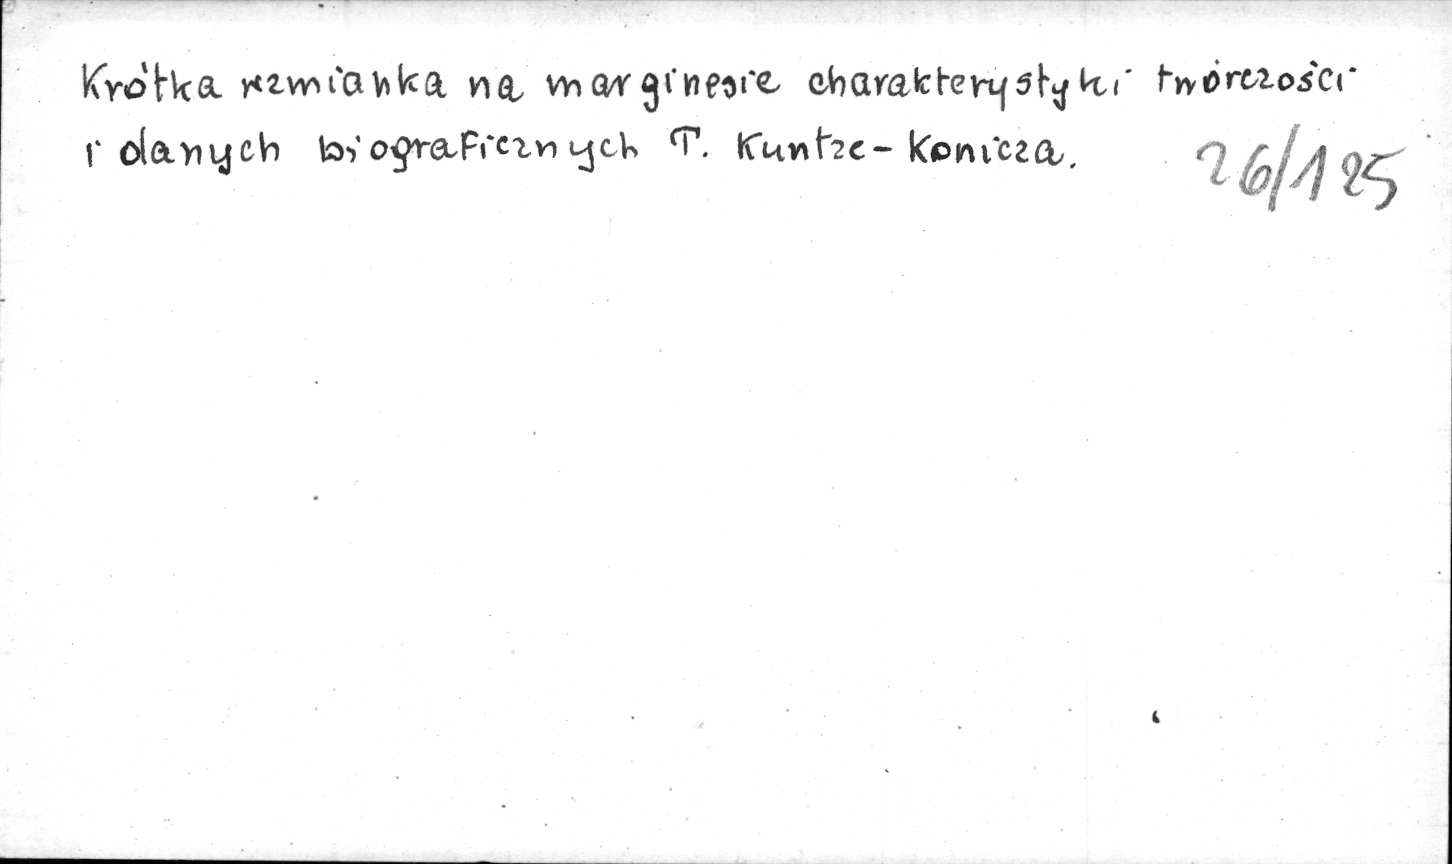 Krótka wzmianka na marginesie charakterystyki twórczości
i danych biograficznych T. Kuntze-Konicza.
26/125